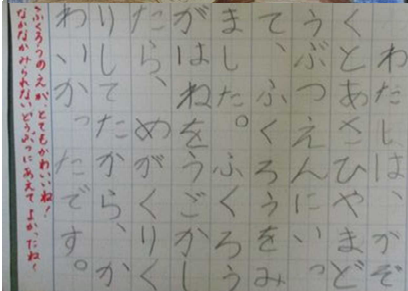 わたしは、がぞ
くとあさひやまど
うぶつえんにいっ
て、ふくろうをみ
ました。ふくろう
がはねをうごかし
たら、めがくりく
りしてたから、か
わいかったです。
ふくろうのえが、とてもかわいいね!
なかなかみられないどうぶつにあえてよかったね!